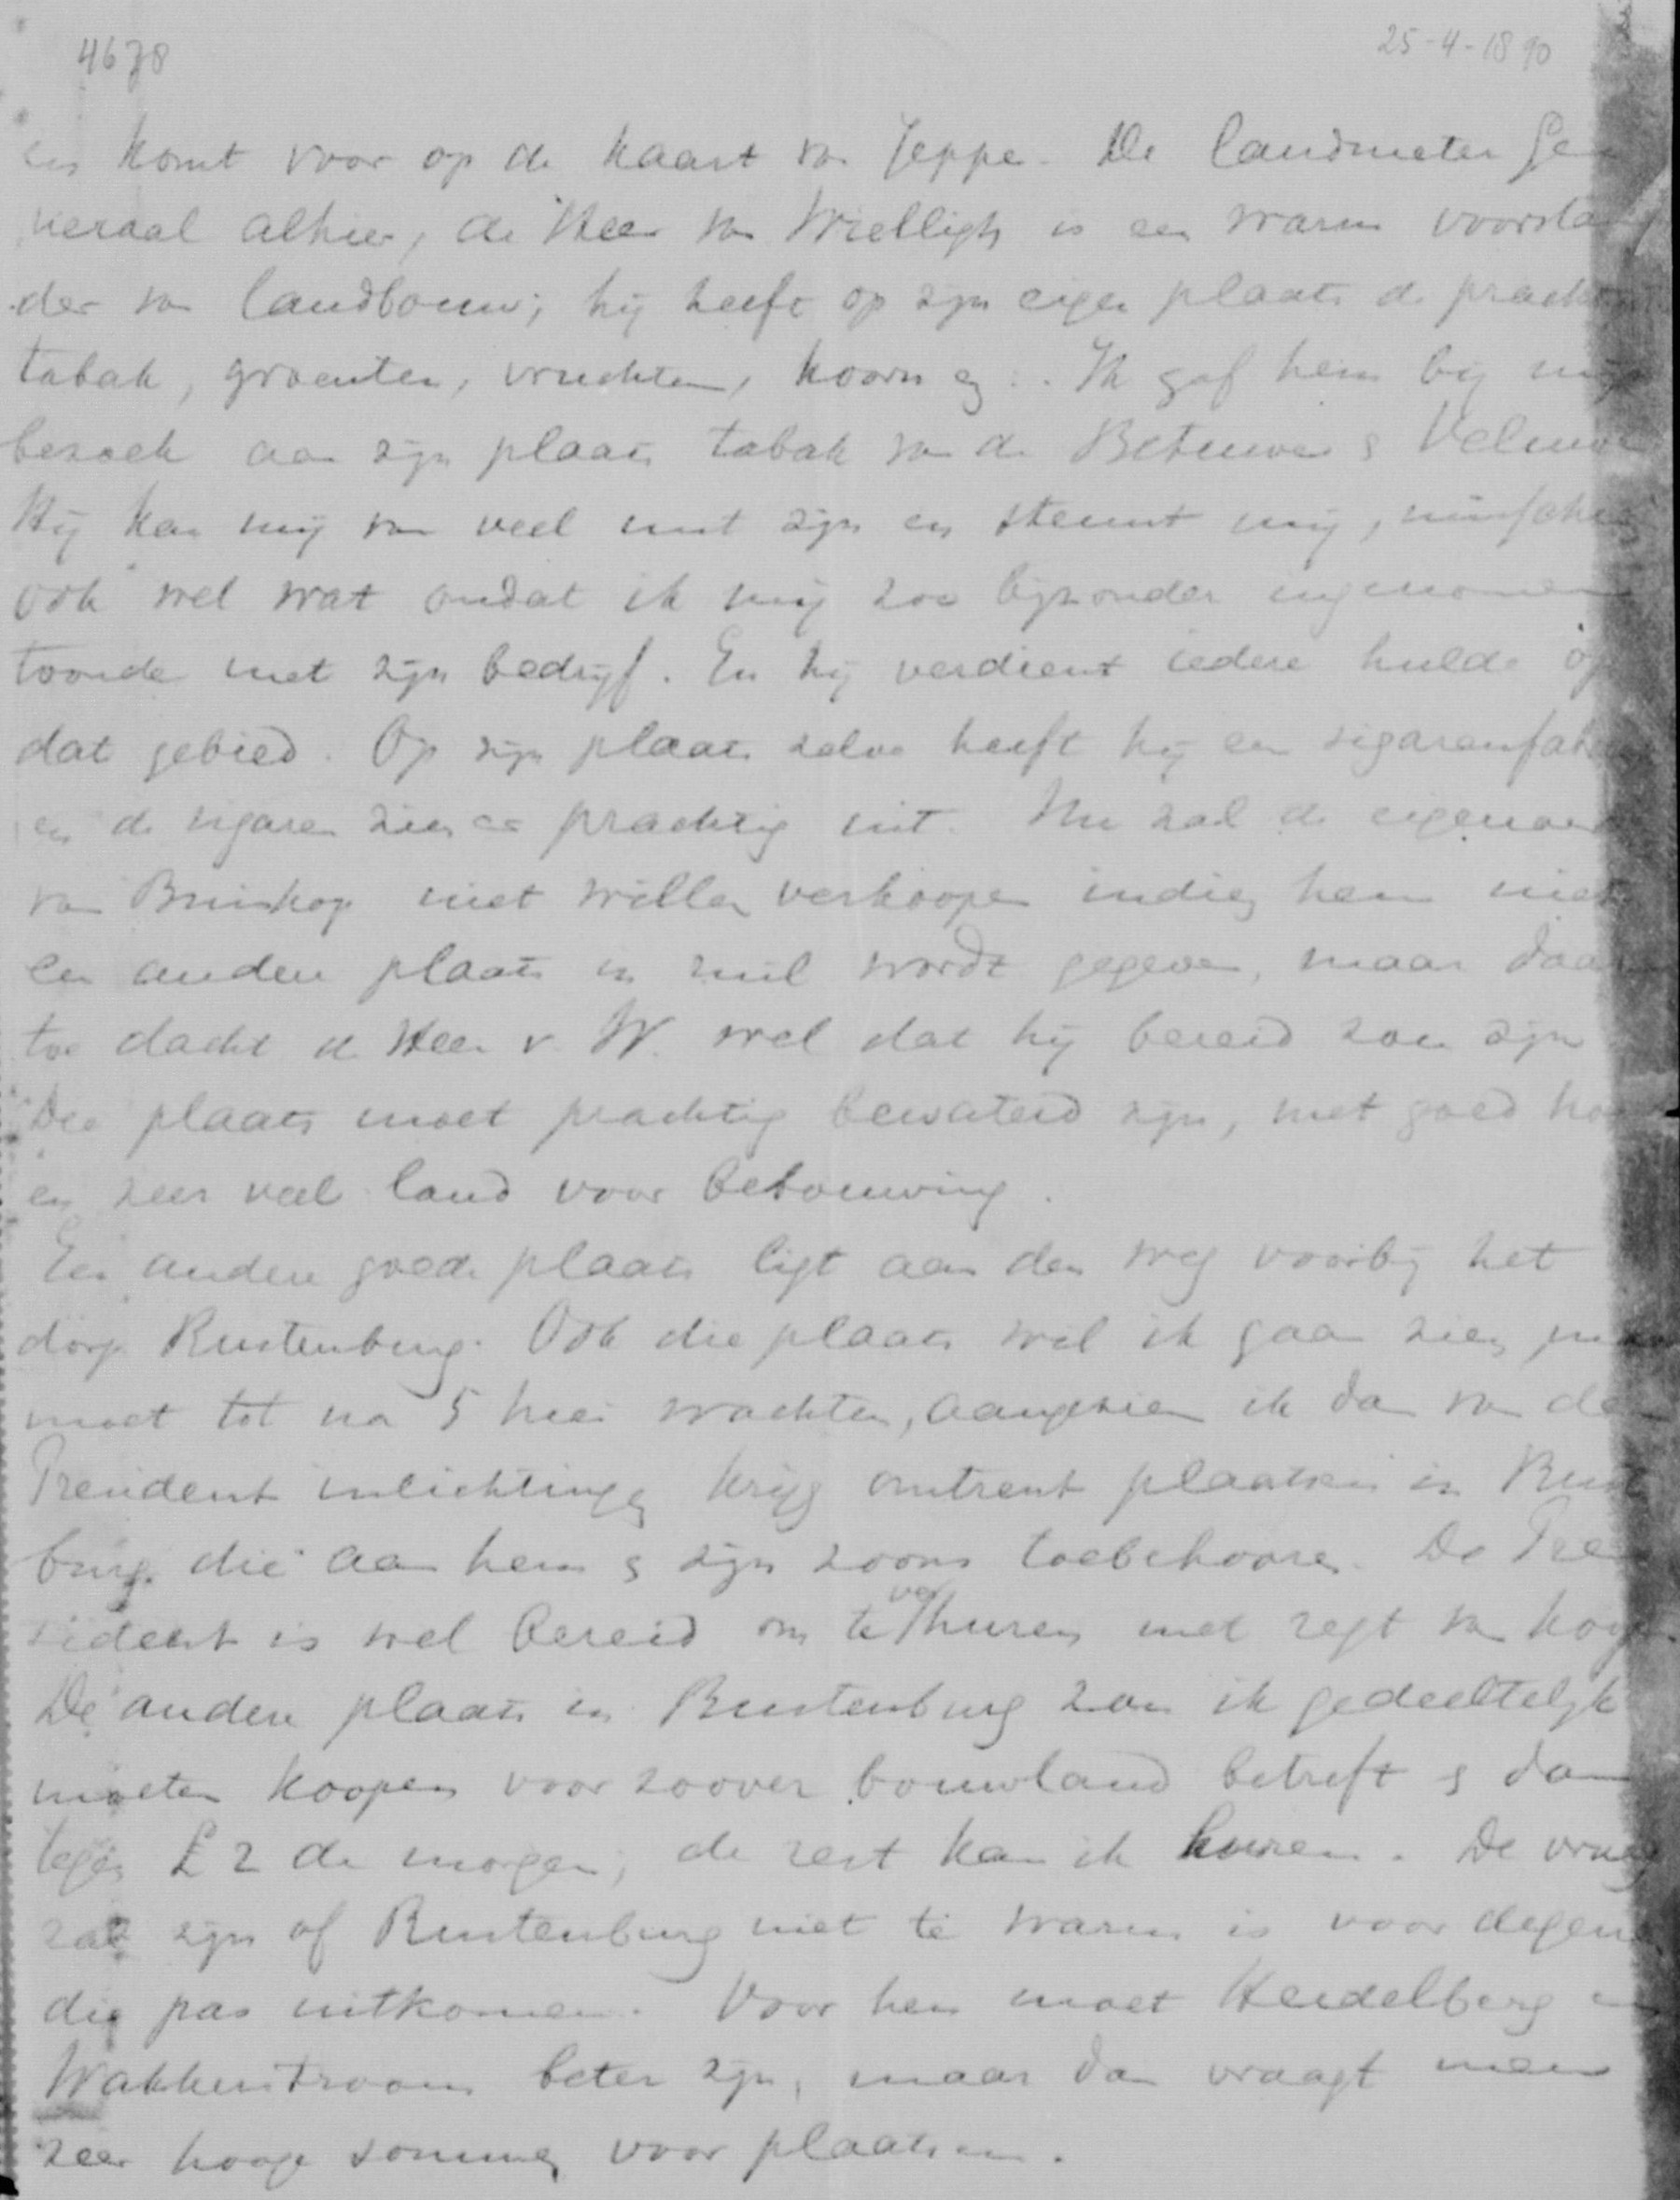 4678
25-4-1890
en komt voor op de kaart van Jeppe. De landmeter Ge
neraal alhier, de Heer van Wielligh is een warm voorstan
der van landbouw; hij heeft op zijn eigen plaats de prachtig
tabak, groenten, vruchten, koorn Ik gaf hem bij mijn
bezoek aan zijn plaats tabak van de Betuwe & Veluwe
Hij kan mij van veel nut zijn en steunt mij, misschien
ook wel wat omdat ik mij zoo bijzonder ingenomen
toonde met zijn bedrijf. En hij verdient iedere hulde op
dat gebied. Op zijn plaats zelve heeft hij een sigarenfab
en de sigaren zien er prachtig uit. Nu zal de eigenaar
van niet willen verkoopen indien hem niet
een andere plaats in ruil wordt gegeven, maar daar
toe dacht de Heer v. W. wel dat hij bereid zou zijn
Die plaats moet prachtig bewaterd zijn, met goed
en zeer veel land voor bebouwing.
Een andere goede plaats ligt aan den weg voorbij het
dorp Rustenburg. Ook die plaats wil ik gaan zien, maar
moet tot na 5 Mei wachten, aangezien ik dan van de
President inlichtingen krijg omtrent plaatsen in Rust
burg die aan hem & zijn zoons toebehooren. De Pre
sident is wel bereid om te verhuren met regt van koop.
De andere plaats in Rustenburg zou ik gedeeltelijk
moeten koopen voor zoover bouwland betreft & dan
tegen £ 2 de morgen, de rest kan ik huren. De vraag
zal zijn of Rustenburg niet te warm is voor degene
die pas uitkomen. Voor hen moet Heidelberg en
Wakkerstroom beter zijn, maar dan vraagt men
zeer hooge sommen voor plaatsen.